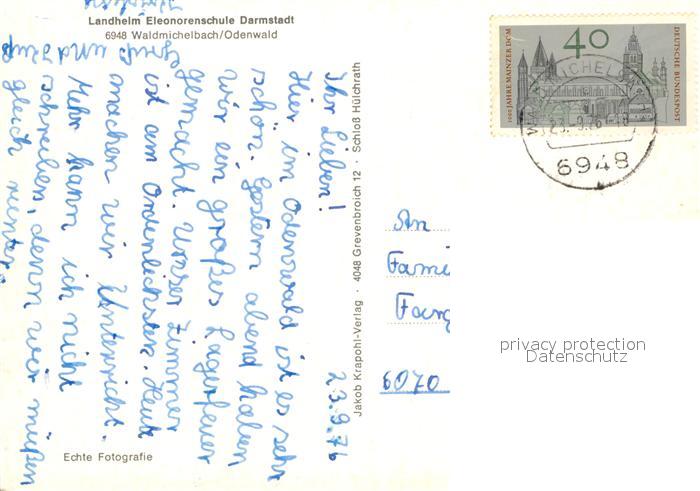 Landheim Eleonorenschule Darmstadt
6948 Waldmichelbach/Odenwald
23.9.76
Ihr Lieben!
Hier im Odenwald ist es sehr
schön. Gestern abend haben
wir ein großes Lagerfeuer
gemacht. Unser Zimmer
ist am Ordenlichsten. Heute
machen wir Unterricht.
Mehr kann ich nicht
schreiben, denn wir müßen
gleich runter.
Gruß und Kuß
Echte Fotografie
Jakob Krapohl-Verlag · 4048 Grevenbroich 12 · Schloß Hülchrath
40
1000 JAHRE MAINZER DOM
DEUTSCHE BUNDESPOST
6948
An
Fami
Fang
6070
privacy protection
Datenschutz